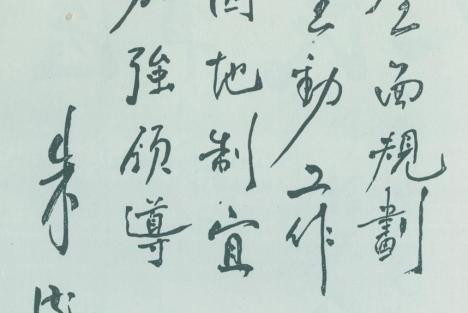 全面規劃
主動工作
因地制宜
加強領導
朱